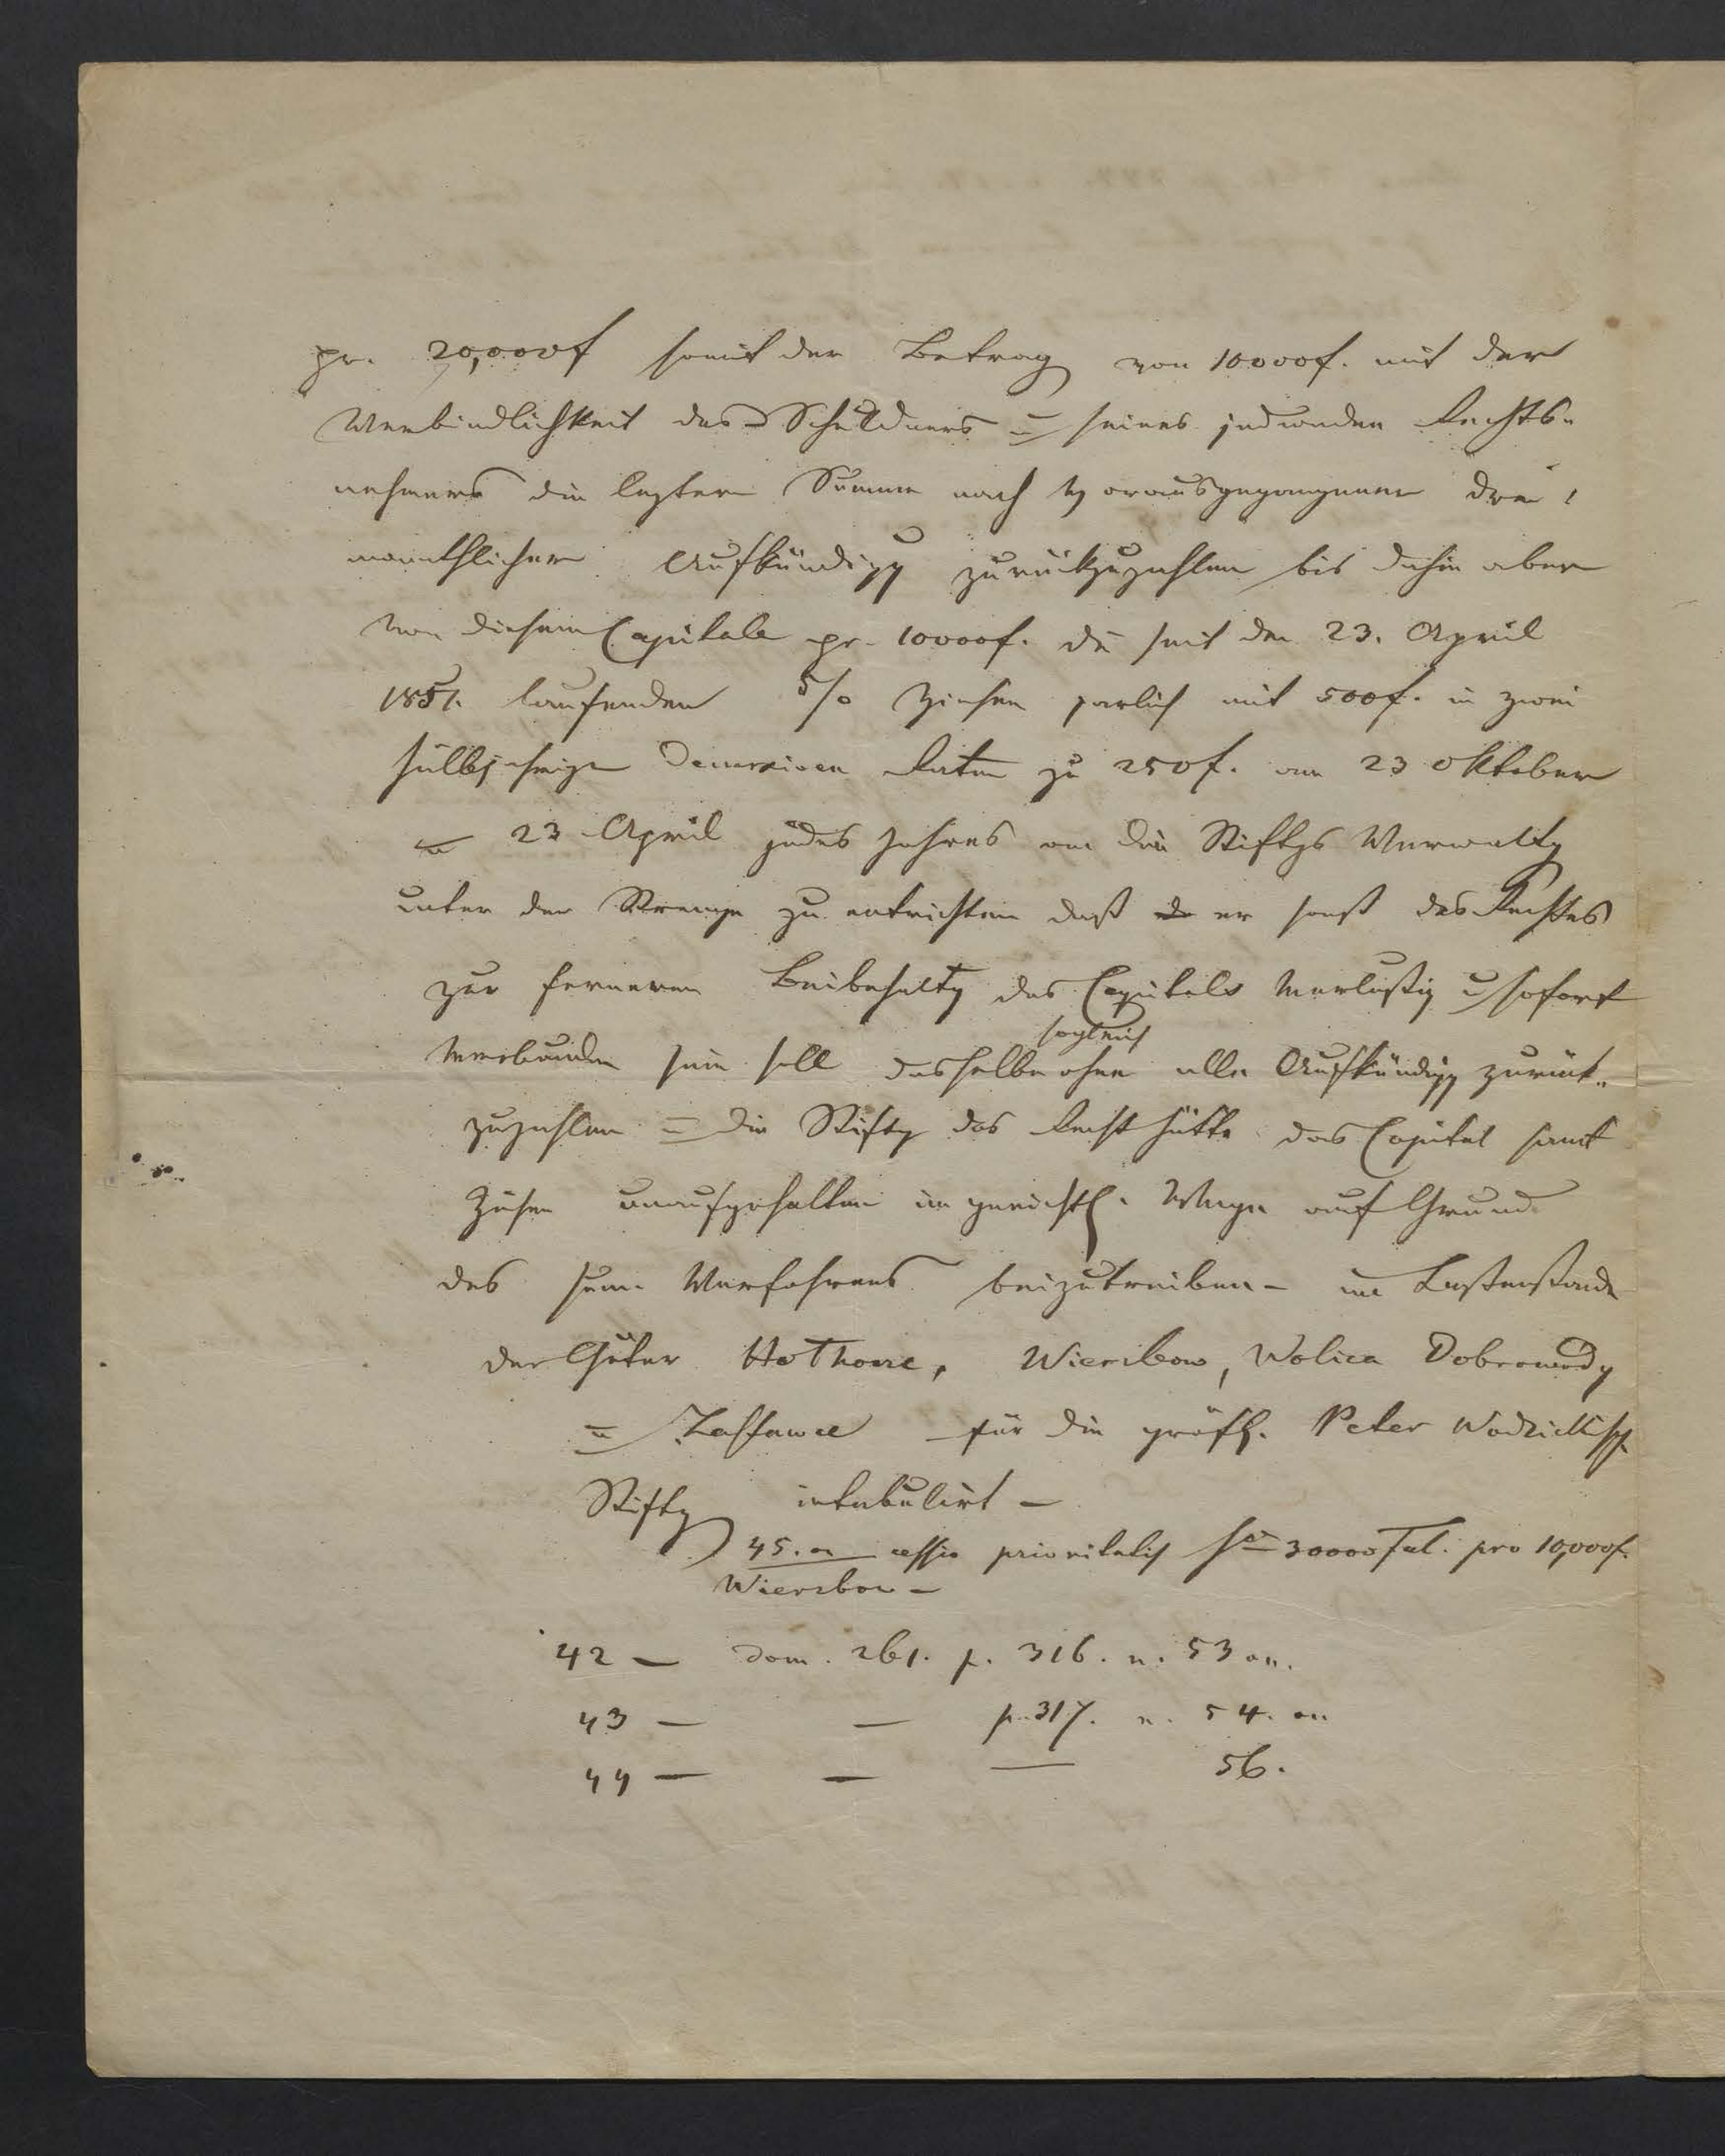 pr. 20,000f somit der Betrag von 10000f. mit der
Verbindlichkeit des Schuldners u seines jedweden Rechts-
nehmers die leztere Summe nach vorausgegangener drei
monathlicher Aufkündigg zurükzuzahlen bis dahin aber
von diesem Capitale pr. 10000f. die seit den 23. April
1851. laufenden 5/0 Zinsen jarlich mit 500f. in zwei
halbjahrige decursiven Raten zu 250f. am 23 Oktober
u 23 April jedes Jahres an die Stiftgs Verwaltg
unter der Strenge zu entrichten daß er sonst des Rechtes
zur ferneren Beibehaltg des Capitals verlustig u sofort
verbunden sein soll dasselbe sogleich ohne alle Aufkündigg zurük-
zuzahlen u die Stiftg das Recht hätte das Capital samt
Zinsen unaufgehalten im gerichtl. Wege auf Grund
des Verfahrens beizutreiben – im Lastenstande
der Güter Wierzbow, Wolica Dobrowody
u Zastawce für die gräfl. Peter Wodzickisch
Stiftg intabulirt –
45. on cessio prioritatis 30000 pro 10,000f.
Wierzbow –
42 – dom. 261. p. 316. n. 53 on.
43 – – p. 317. n. 54. on
44 – – – 56.